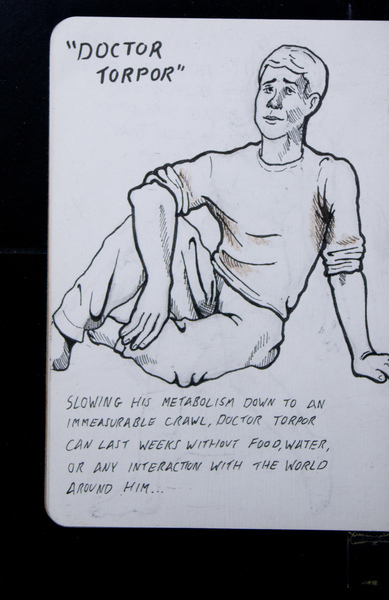 "DOCTOR
TORPOR"
SLOWING HIS METABOLISM DOWN TO AN
IMMEASURABLE CRAWL, DOCTOR TORPOR
CAN LAST WEEKS WITHOUT FOOD, WATER,
OR ANY INTERACTION WITH THE WORLD
AROUND HIM...